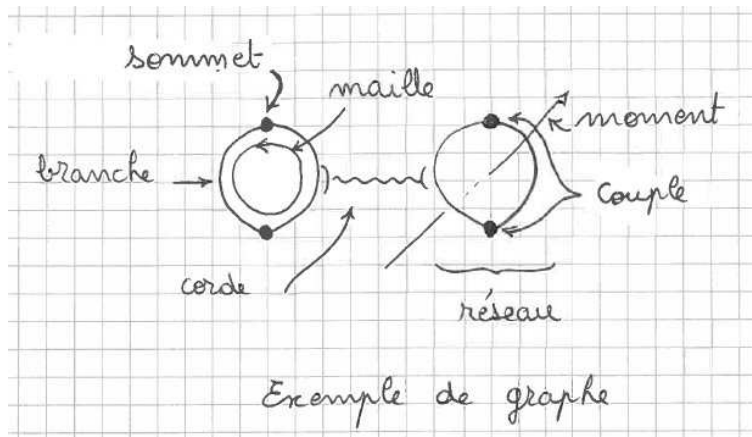 sommet
maille
moment
branche
couple
corde
réseau
Exemple de graphe